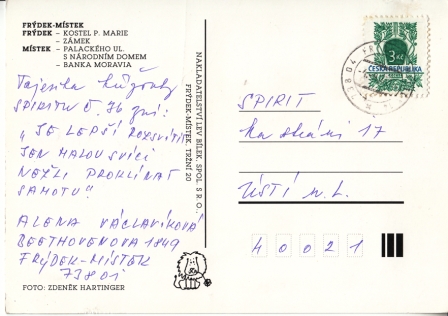 FRÝDEK-MÍSTEK
FRÝDEK – KOSTEL P. MARIE
– ZÁMEK
MÍSTEK – PALACKÉHO UL.
S NÁRODNÍM DOMEM
– BANKA MORAVIA
Tajenka křížovky
SPIRITU Č. 36 zní:
„JE LEPŠÍ ROZSVÍTIT
JEN MALOU SVÍCI
NEŽLI PROKLÍNAT
SAMOTU“
ALENA VÁCLAVÍKOVÁ
BEETHOVENOVA 1849
FRÝDEK-MÍSTEK
73801
FOTO: ZDENĚK HARTINGER
NAKLADATELSTVÍ LEV BÍLEK, SPOL. S R.O.
FRÝDEK-MÍSTEK, TRŽNÍ 20
3 Kč
ČESKÁ REPUBLIKA
SPIRIT
Na stráni 17
ÚSTÍ n. L.
40021